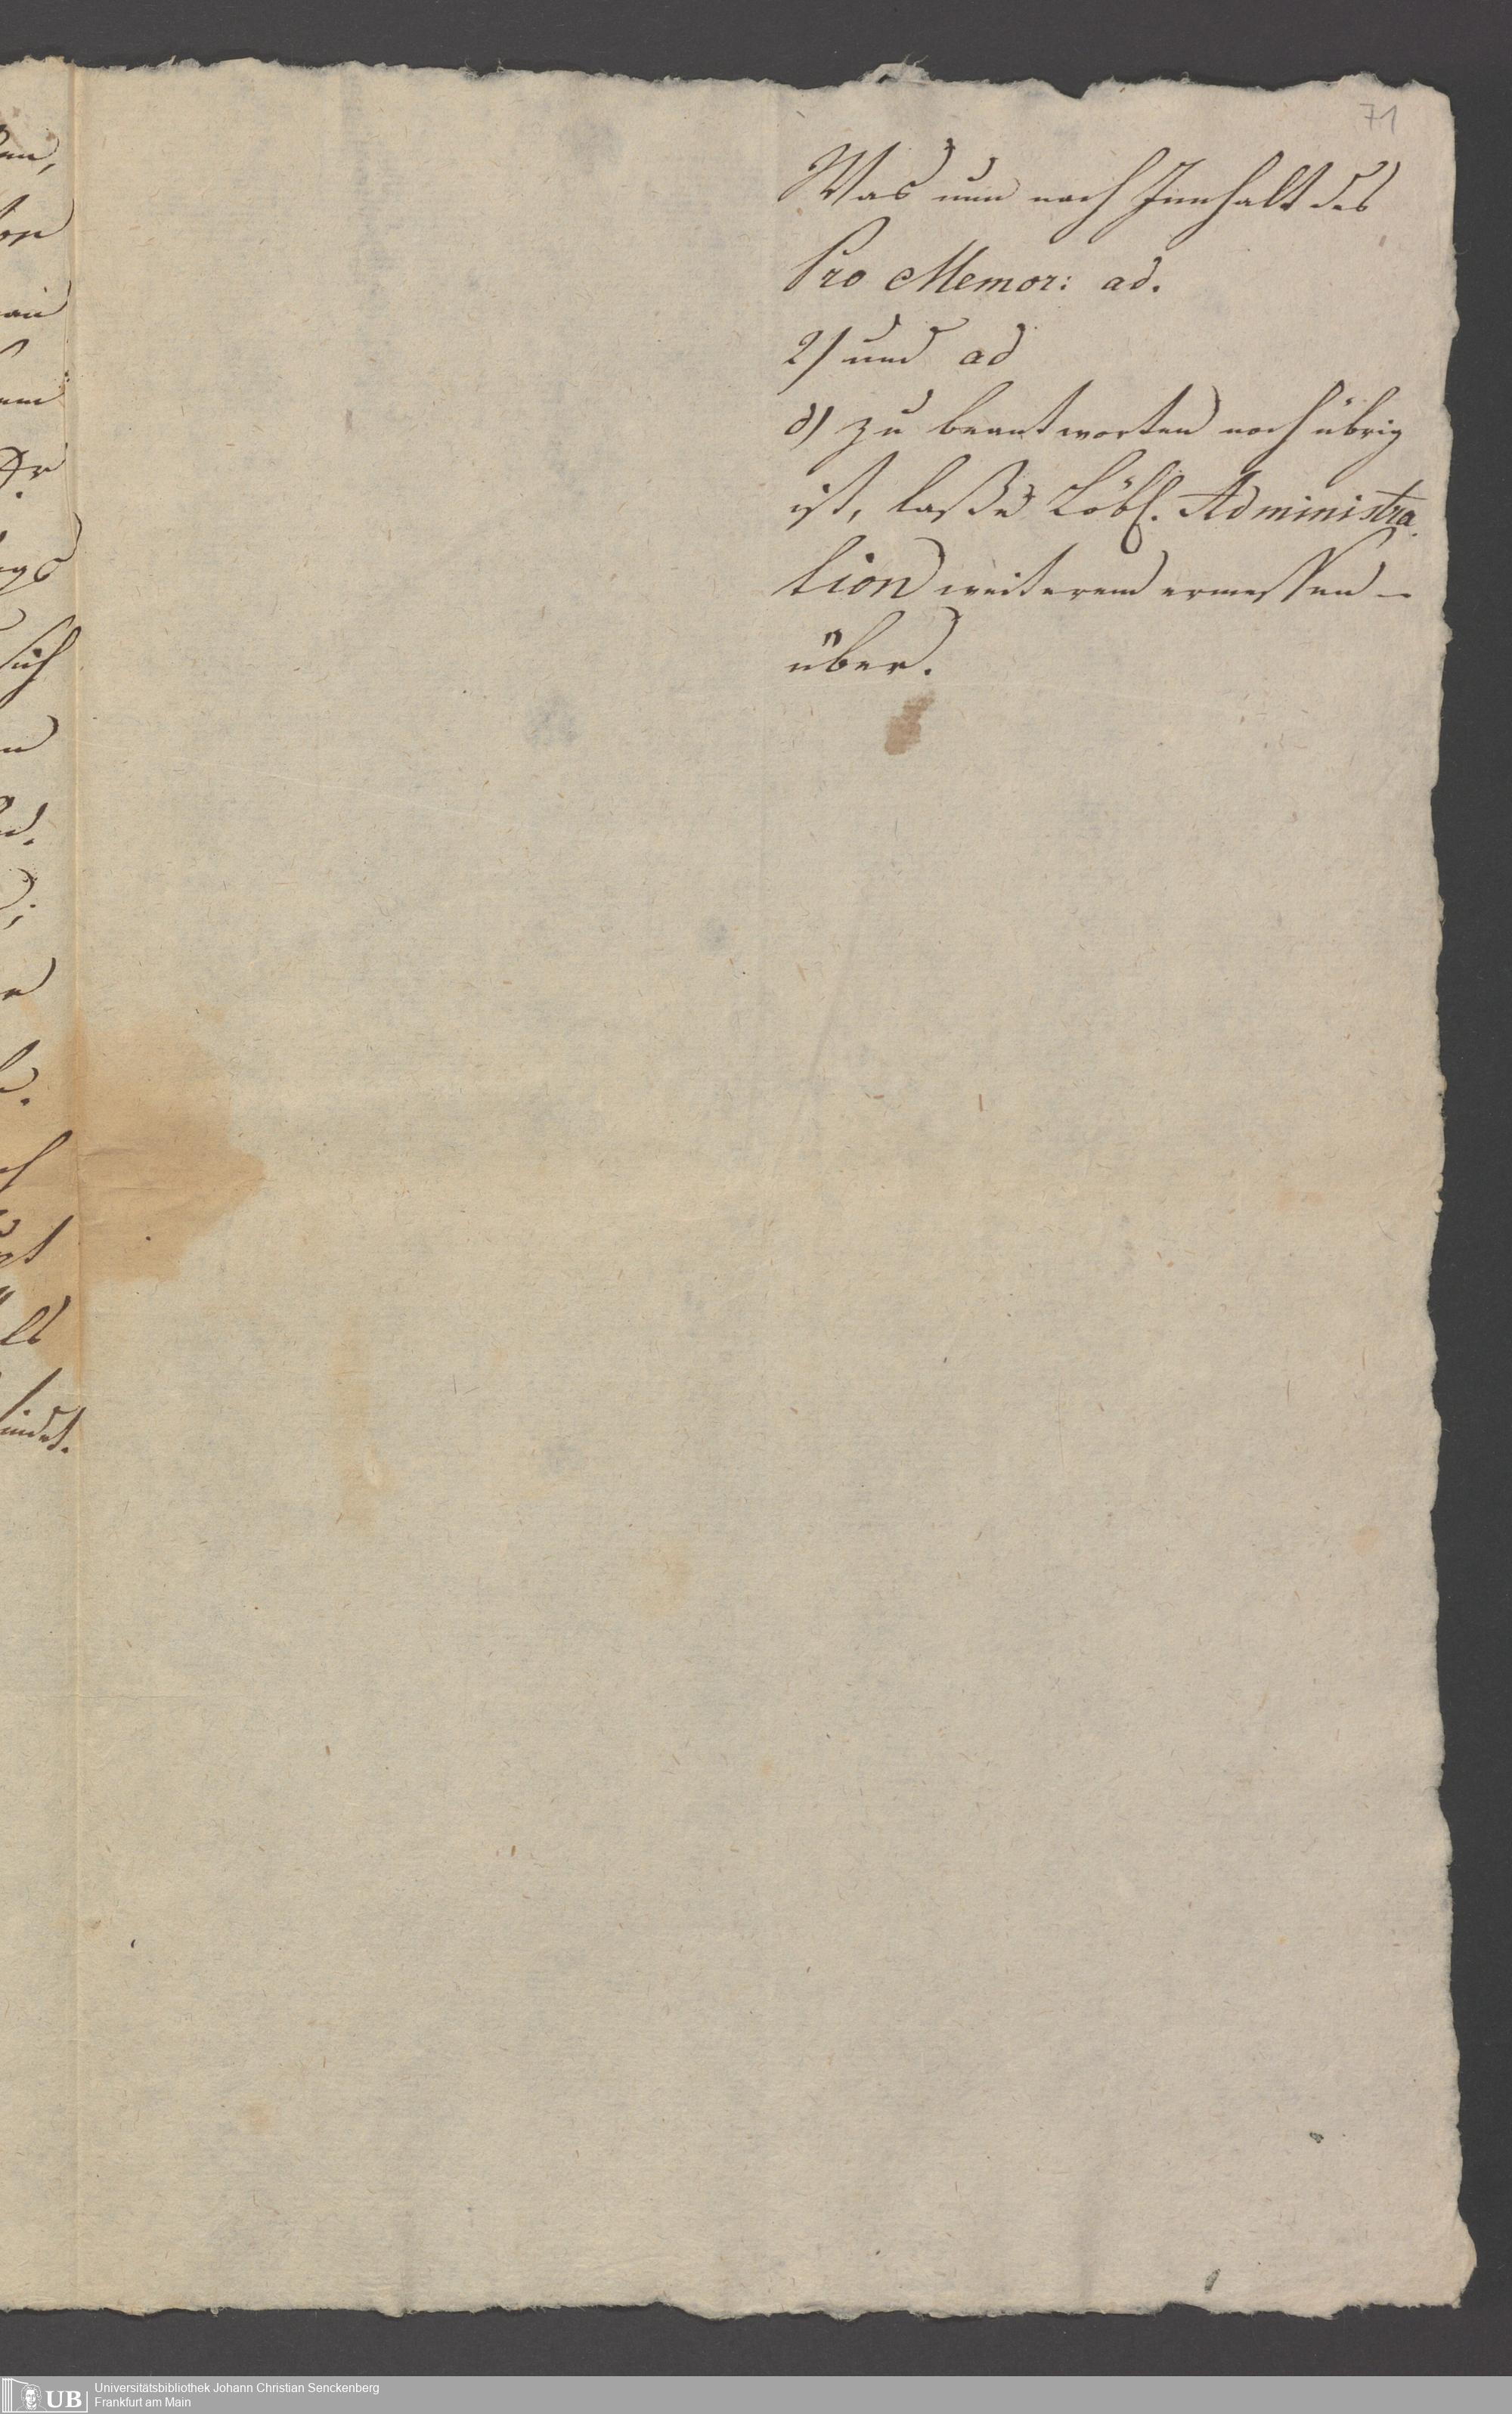 71
Was nun nach Innhalt des
Pro Memor: ad.
2) und ad
3) zu beantworten noch übrig
ist, laße Löbl. Administra
tion weiterem ermessen
über.
Universitätsbibliothek Johann Christian Senckenberg
Frankfurt am Main
UB